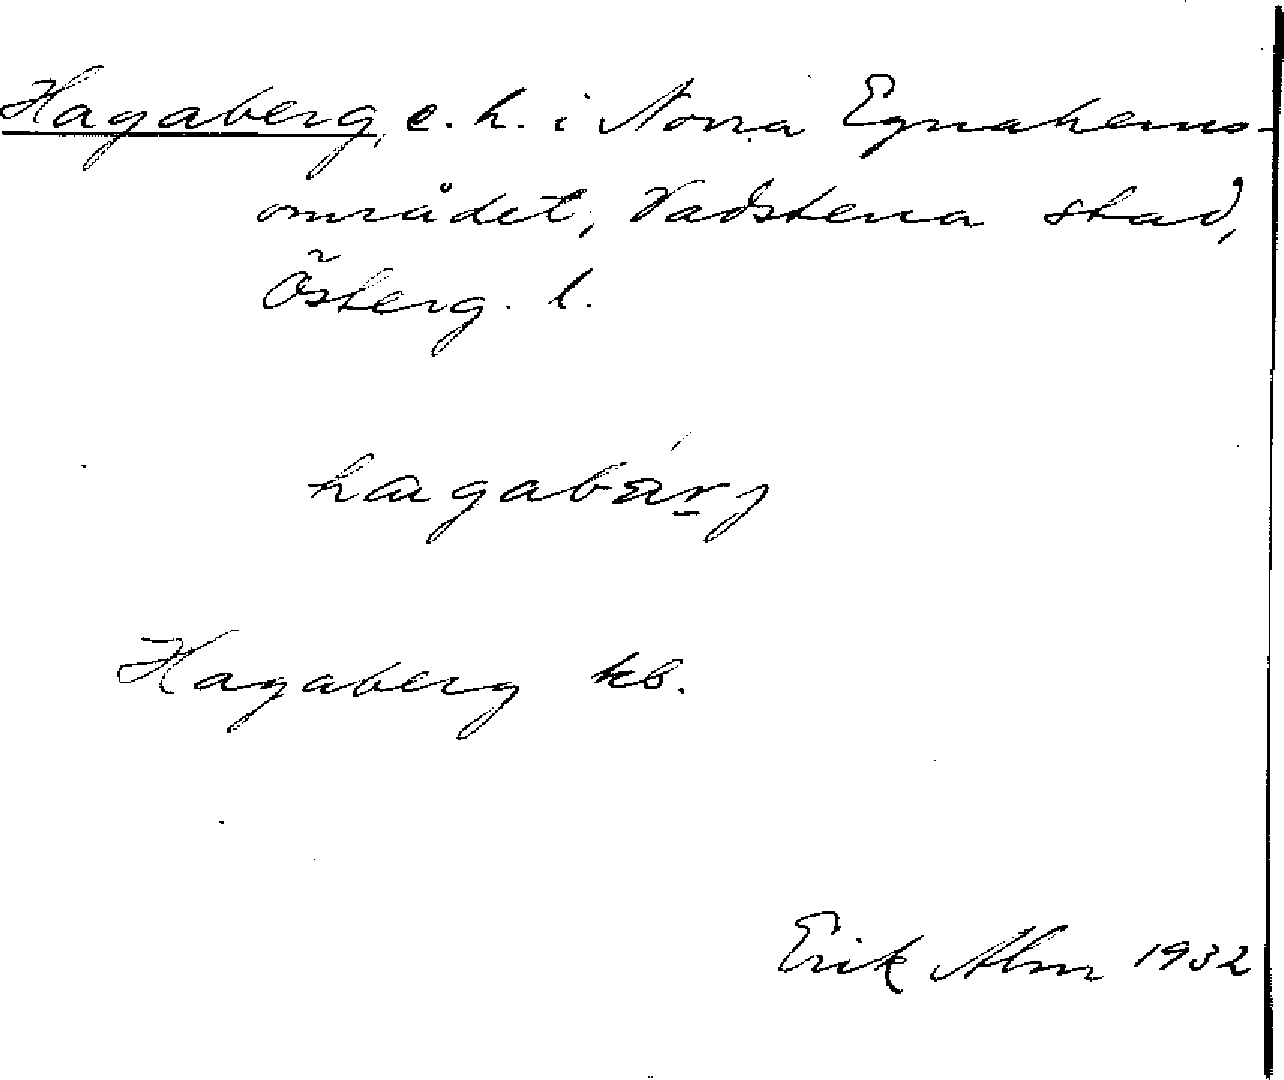 Hagaberg, e. h. i Norra Egnahems-
området, Vadstena stad,
Österg. l.
hagabärj
Hagaberg kb.
Erik Alm 1932